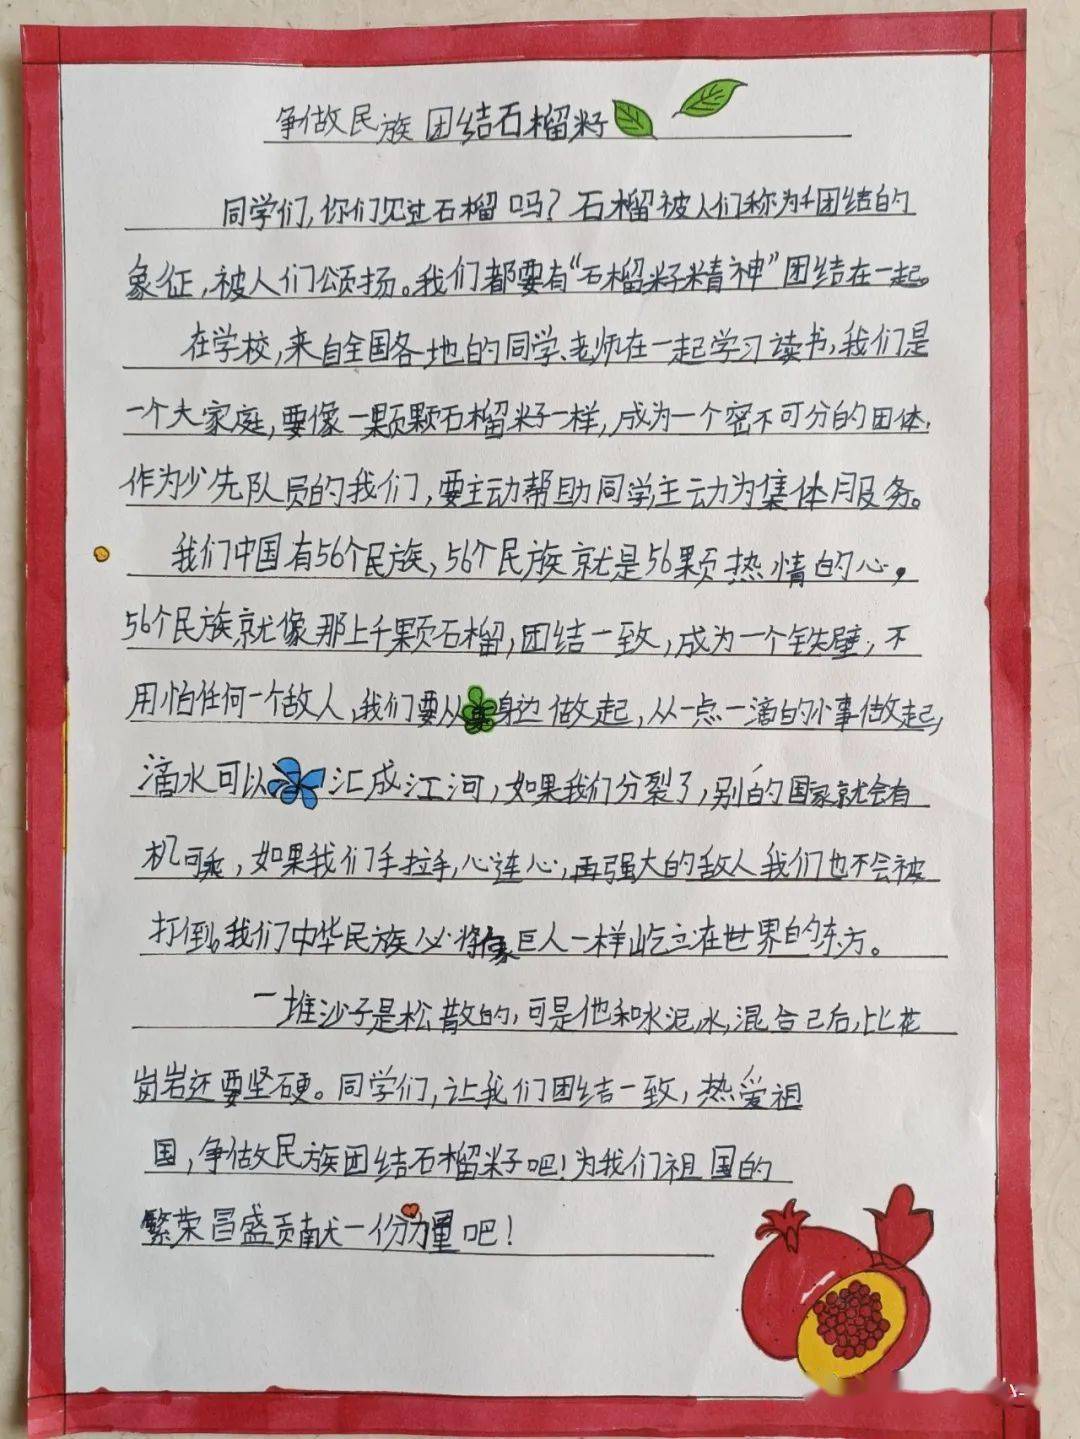 争做民族团结石榴籽
同学们,你们见过石榴吗?石榴被人们称为团结的
象征,被人们颂扬。我们都要有“石榴籽精神”团结在一起。
在学校,来自全国各地的同学、老师在一起学习读书,我们是
一个大家庭,要像一颗颗石榴籽一样,成为一个密不可分的团体,
作为少先队员的我们,要主动帮助同学主动为集体服务。
我们中国有56个民族,56个民族就是56颗热情的心,
56个民族就像那上千颗石榴,团结一致,成为一个铁壁,不
用怕任何一个敌人,我们要从身边做起,从一点一滴的小事做起,
滴水可以汇成江河,如果我们分裂了,别的国家就会有
机可乘,如果我们手拉手,心连心,再强大的敌人我们也不会被
打倒。我们中华民族必将像巨人一样屹立在世界的东方。
一堆沙子是松散的,可是他和水泥,水,混合己后,比花
岗岩还要坚硬。同学们,让我们团结一致,热爱祖
国,争做民族团结石榴籽吧!为我们祖国的
繁荣昌盛贡献一份力量吧!